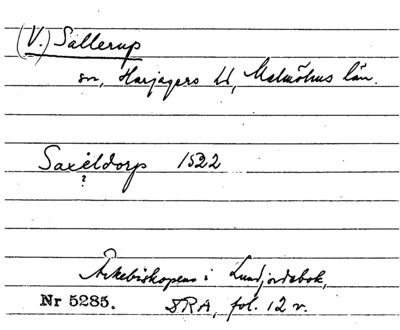 (V.) Sallerup
sn, Harjagers hd, Malmöhus län.
Saxeldorp 1522
?
Ärkebiskopens i Lund jordebok,
Nr 5285. DRA, fol. 12 v.